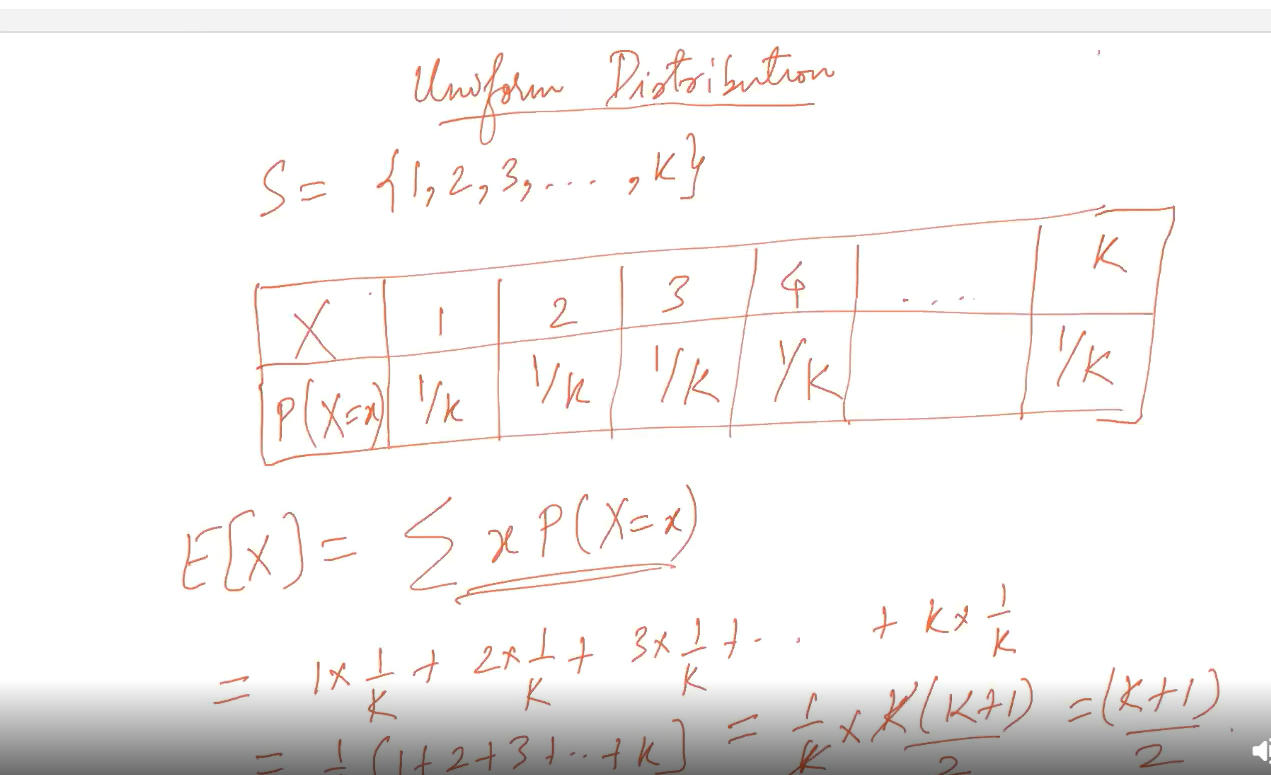 Uniform Distribution
S = {1, 2, 3, ... , K}
X 1 2 3 4 .... K
P(X=x) 1/K 1/K 1/K 1/K 1/K
E[X] = Σ x P(X=x)
= 1 x 1/K + 2 x 1/K + 3 x 1/K + ... + K x 1/K
= 1/K [1+2+3+...+K] = 1/K x K(K+1)/2 = (K+1)/2.